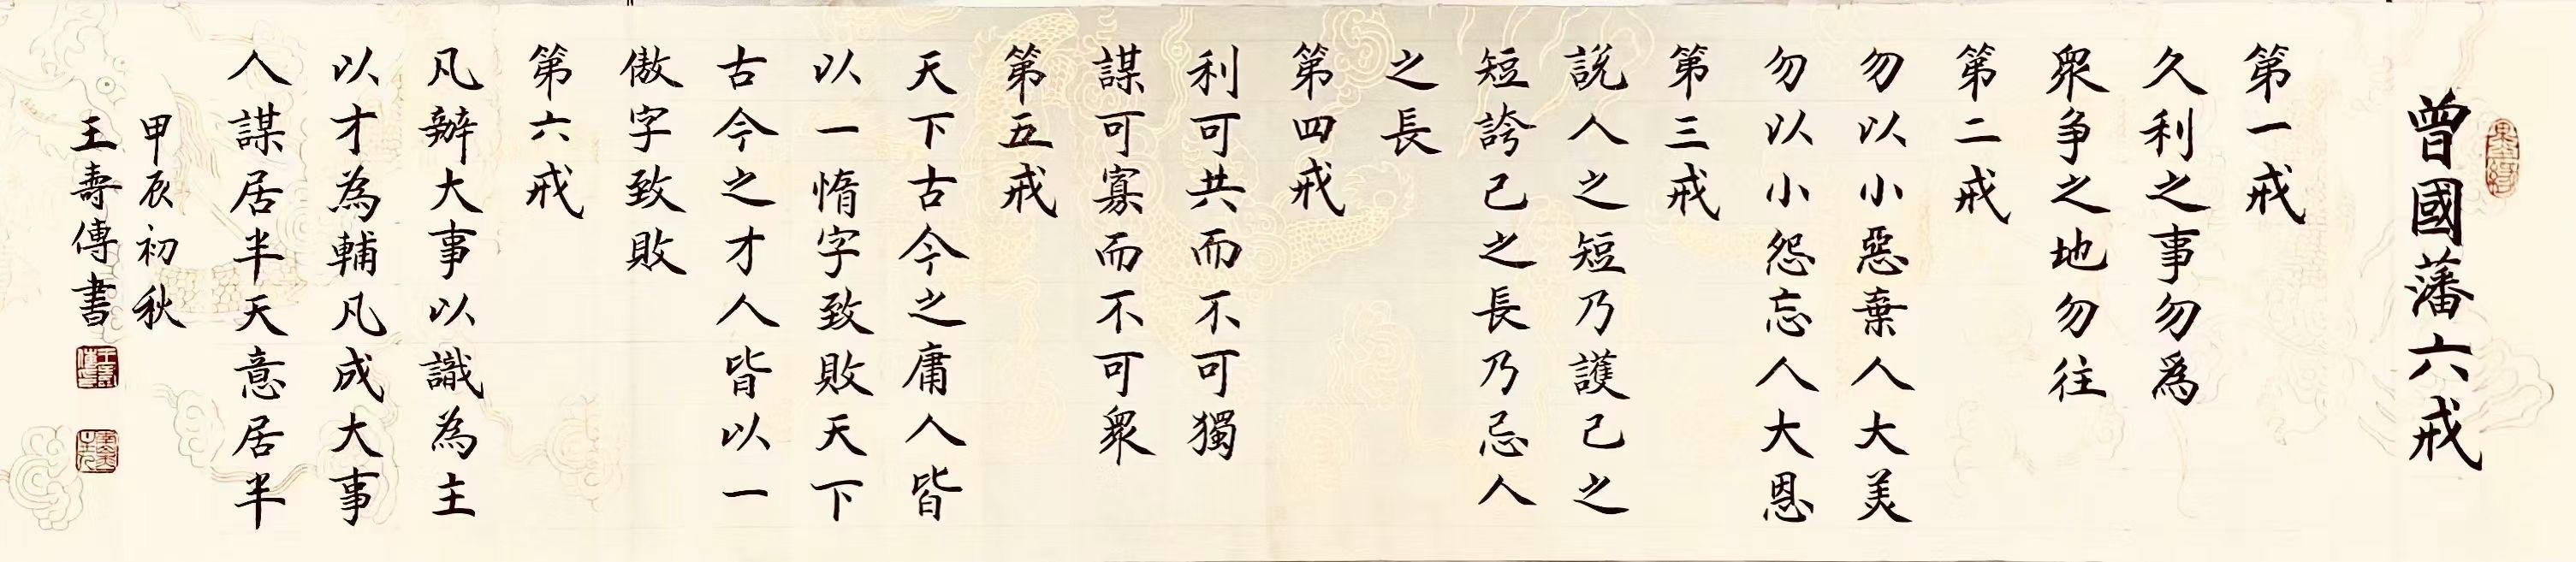 曾國藩六戒
第一戒
久利之事勿爲
眾争之地勿往
第二戒
勿以小惡棄人大美
勿以小怨忘人大恩
第三戒
説人之短乃護己之
短誇己之長乃忌人
之長
第四戒
利可共而不可獨
謀可寡而不可眾
第五戒
天下古今之庸人皆
以一惰字致敗天下
古今之才人皆以一
傲字致敗
第六戒
凡辦大事以識為主
以才為輔凡成大事
人謀居半天意居半
甲辰初秋
王壽傳書